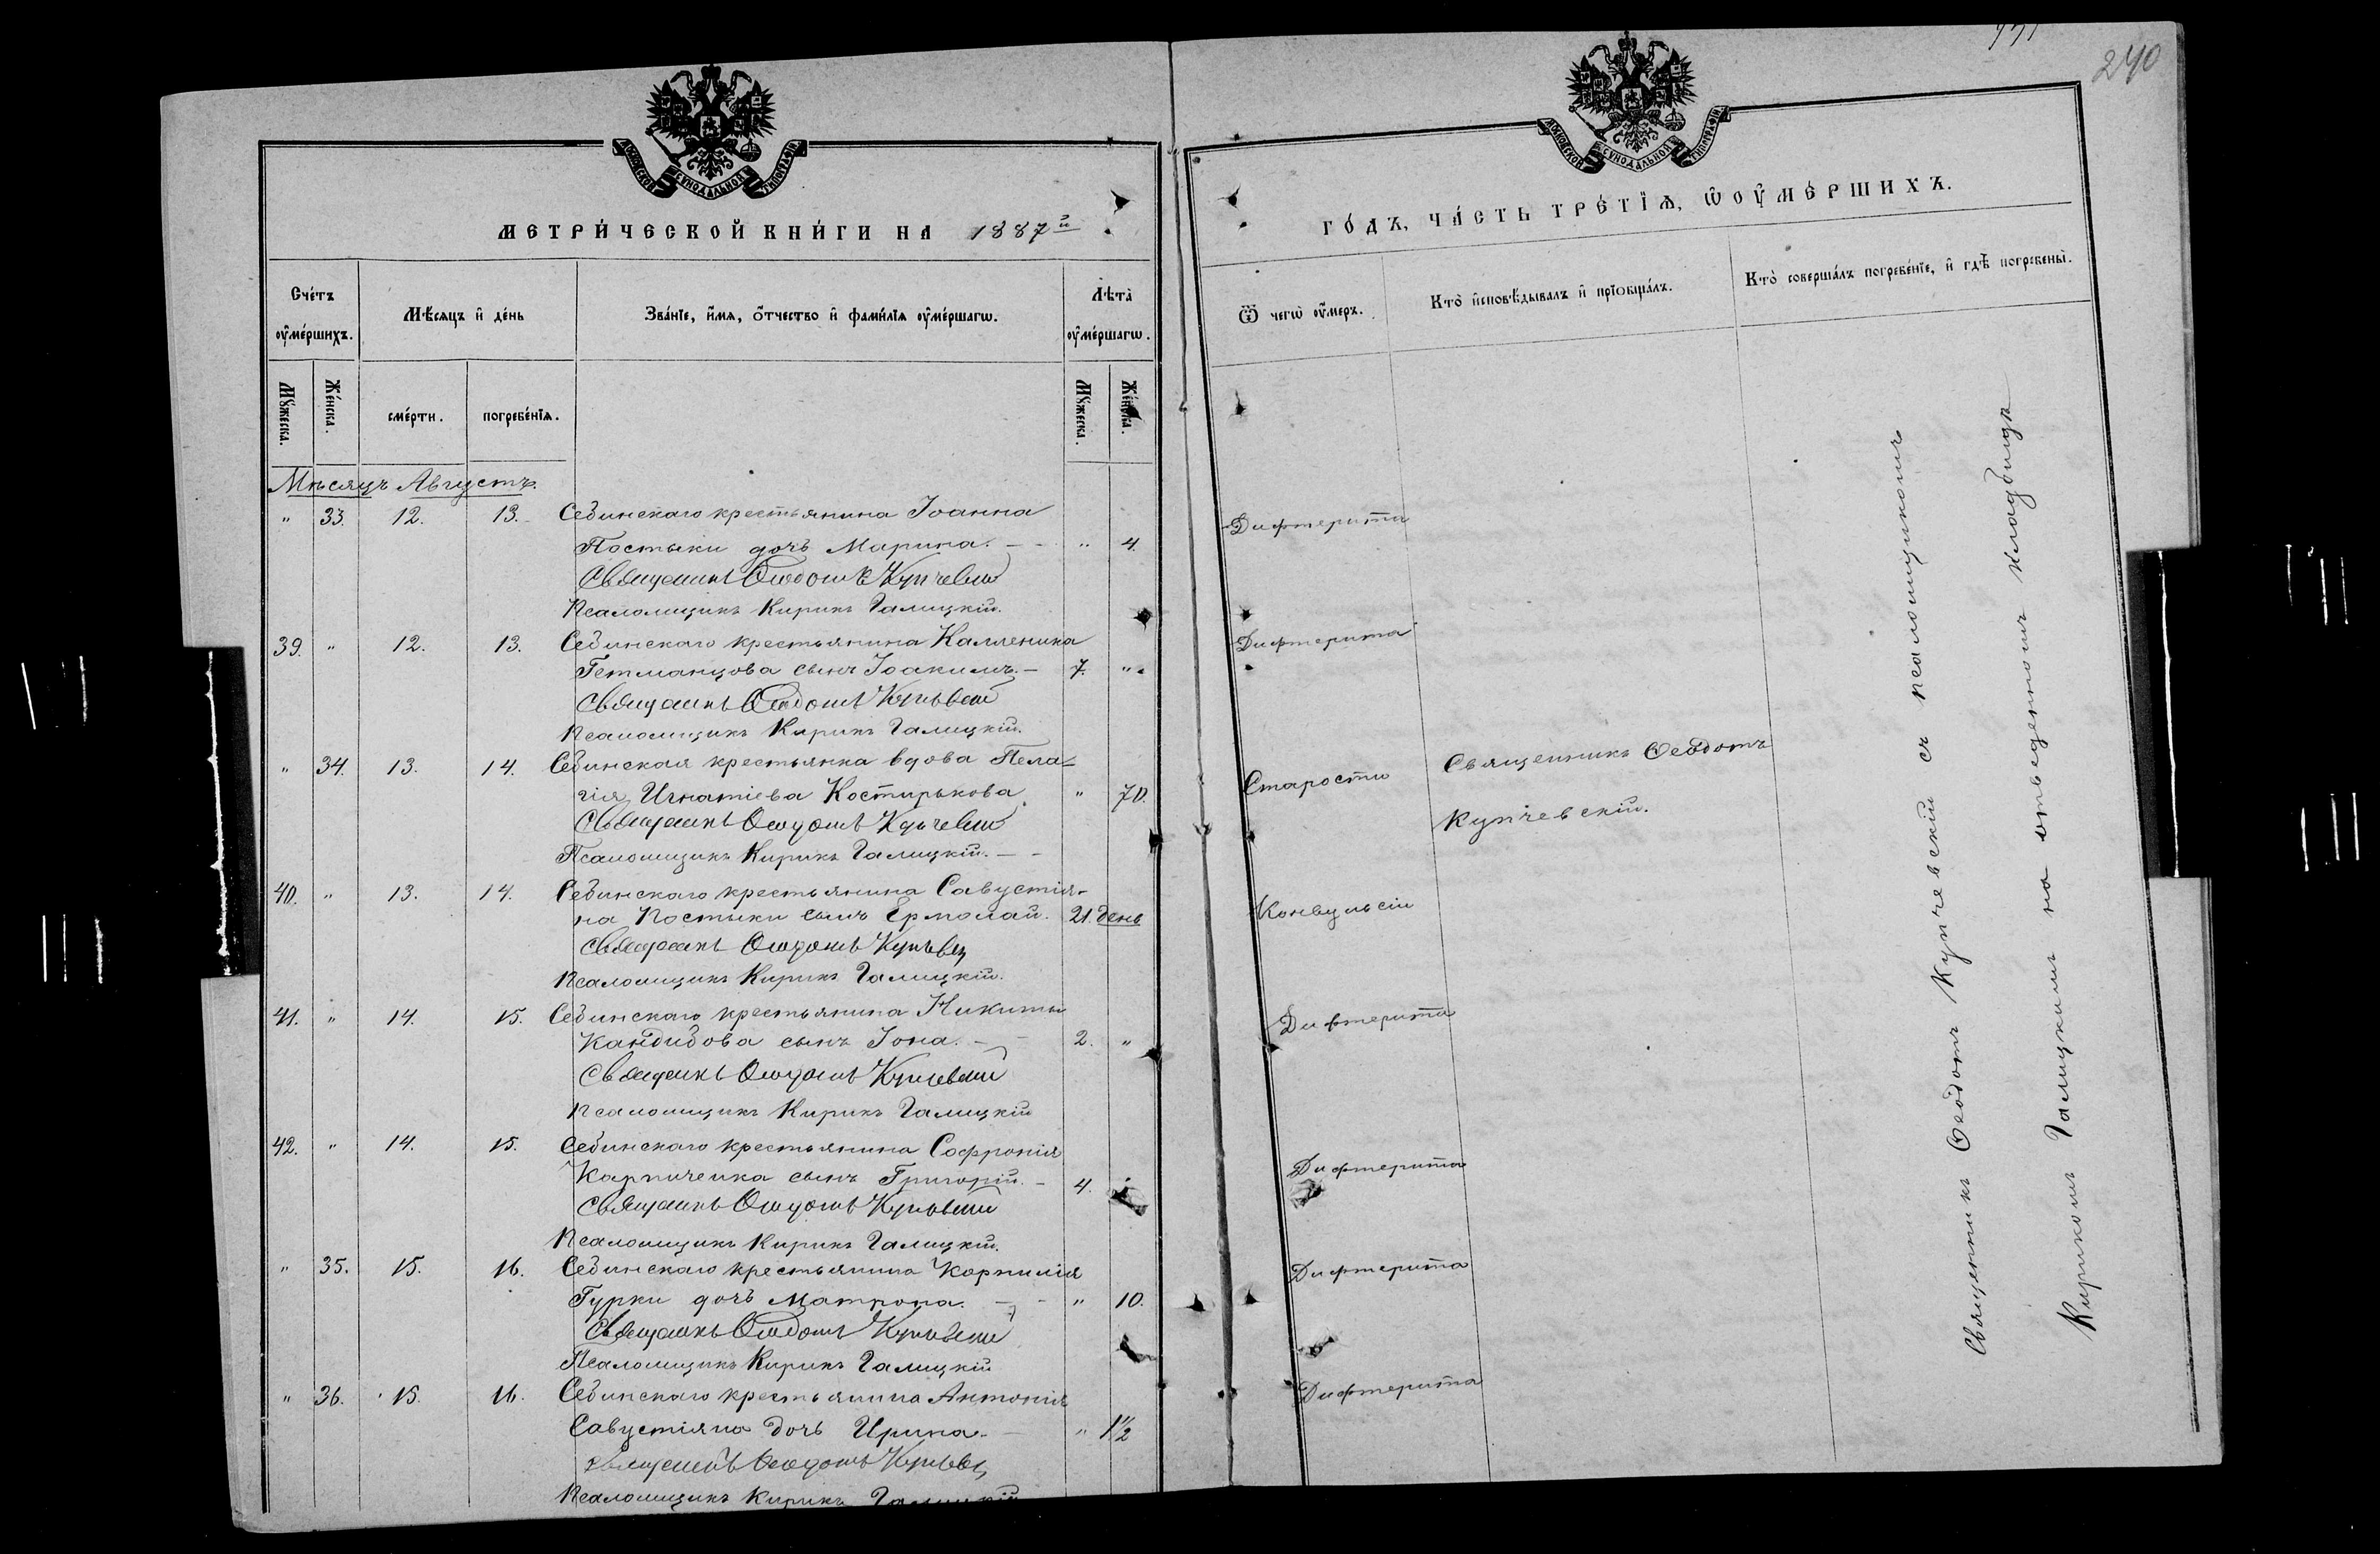 240
МОСКОВСКОЙ СУНОДАЛЬНОЙ ТИПОГРАФІИ
МЕТРИ́ЧЕСКОЙ КНИ́ГИ НА 1887й
Сче́тъ ᲂу҆ме́ршихъ.
Мѣ́сяцъ и҆ де́нь
Зва́нїе, и҆́мѧ, ѻ҆́тчество и҆ фами́лїѧ ᲂу҆ме́ршагѡ.
Лѣта̀ ᲂу҆ме́ршагѡ.
Мꙋ́жеска.
Же́нска.
сме́рти.
погребе́нїѧ.
Мꙋ́жеска.
Же́нска.
Мѣсяцъ Августъ.
" 33. 12. 13. Сединскаго крестьянина Іоанна
Постыки дочь Марина. — " 4.
Священникъ Ѳеодотъ Купчевскій
Псаломщикъ Кирикъ Галицкій.
39. " 12. 13. Сединскаго крестьянина Каленика
Гетманцова сынъ Іоакимъ. — 7. "
Священникъ Ѳеодотъ Купчевскій
Псаломщикъ Кирикъ Галицкій.
" 34. 13. 14. Сединская крестьянка вдова Пела=
гія Игнатіева Костирькова " 70.
Священникъ Ѳеодотъ Купчевскій
Псаломщикъ Кирикъ Галицкій. —
40. " 13. 14. Сединскаго крестьянина Савустія-
на Постыки сынъ Ермолай. 21. день
Священникъ Ѳеодотъ Купчевскій
Псаломщикъ Кирикъ Галицкій.
41. " 14. 15. Сединскаго крестьянина Никиты
Кандидова сынъ Іона. — 2. "
Священникъ Ѳеодотъ Купчевскій
Псаломщикъ Кирикъ Галицкій
42. " 14. 15. Сединскаго крестьянина Софронія
Карпиченка сынъ Григорій. — 4.
Священникъ Ѳеодотъ Купчевскій
Псаломщикъ Кирикъ Галицкій.
" 35. 15. 16. Сединскаго крестьянина Корнилія
Гурки дочь Матрона. — " 10.
Священникъ Ѳеодотъ Купчевскій
Псаломщикъ Кирикъ Галицкій
" 36. 15. 16. Сединскаго крестьянина Антонія
Савустіяна дочь Ирина. — " 1 1/2
Священникъ Ѳеодотъ Купчевскій
Псаломщикъ Кирикъ Галицкій
МОСКОВСКОЙ СУНОДАЛЬНОЙ ТИПОГРАФІИ
ГО́ДЪ, ЧА́СТЬ ТРЕ́ТЇѦ, Ѡ ОУ҆МЕ́РШИХЪ.
Ѿ чегѡ̀ ᲂу҆́меръ.
Кто̀ и҆сповѣ́дывалъ и҆ прїѻбща́лъ.
Кто̀ соверша́лъ погребе́нїе, и҆ гдѣ̀ погребены̀.
Дифтерита
Дифтерита
Старости
Священникъ Ѳеодотъ
Купчевскій.
Конвульсіи
Дифтерита
Дифтерита
Дифтерита
Дифтерита
Священникъ Ѳеодотъ Купчевскій съ псаломщикомъ
Кирикомъ Галицкимъ на отведенномъ кладбищѣ